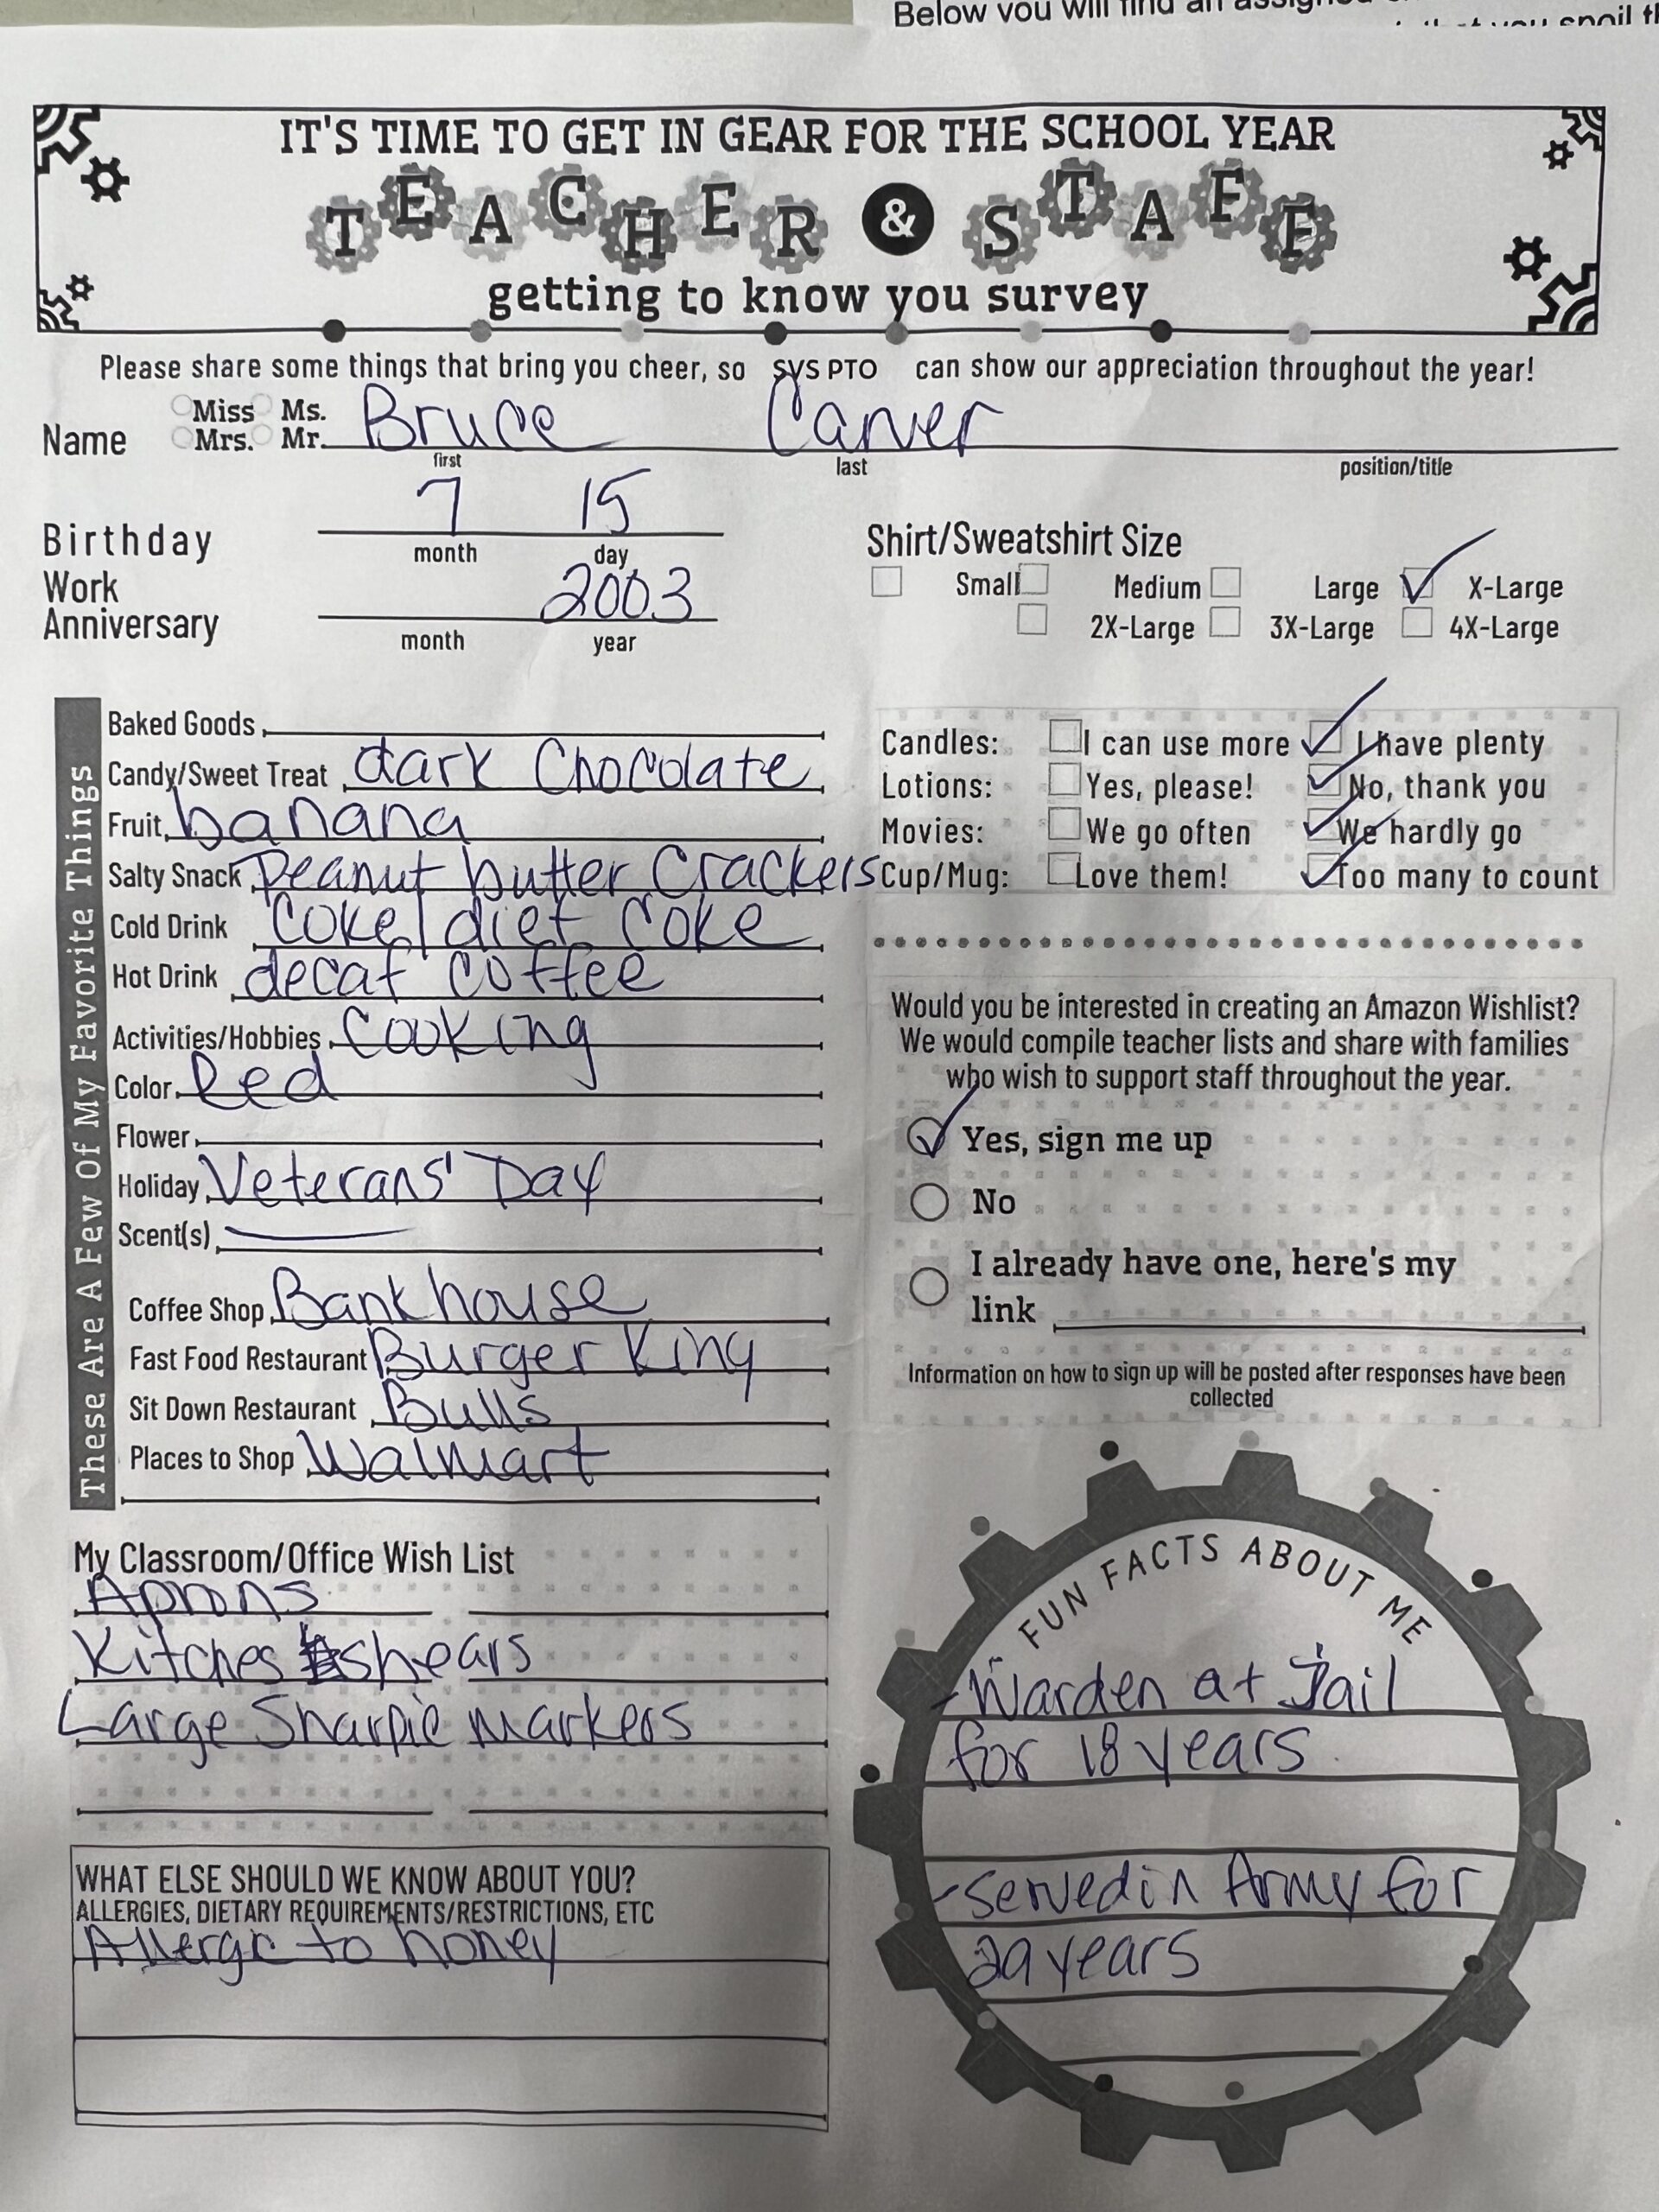 Below you will find an assigned
that you spoil th
IT'S TIME TO GET IN GEAR FOR THE SCHOOL YEAR
TEACHER & STAFF
getting to know you survey
Please share some things that bring you cheer, so SVS PTO can show our appreciation throughout the year!
Miss Ms.
Name Mrs. Mr. Bruce Carver
first last position/title
7 15
Birthday
month day
Work Anniversary 2003
month year
Shirt/Sweatshirt Size
Small Medium Large ✓ X-Large
2X-Large 3X-Large 4X-Large
These Are A Few Of My Favorite Things
Baked Goods
Candy/Sweet Treat dark Chocolate
Fruit banana
Salty Snack Peanut butter Crackers
Cold Drink Coke/diet Coke
Hot Drink decaf coffee
Activities/Hobbies Cooking
Color Red
Flower
Holiday Veterans' Day
Scent(s) —
Coffee Shop Bankhouse
Fast Food Restaurant Burger King
Sit Down Restaurant Bulls
Places to Shop Walmart
Candles: I can use more ✓ I have plenty
Lotions: Yes, please! ✓ No, thank you
Movies: We go often ✓ We hardly go
Cup/Mug: Love them! ✓ Too many to count
Would you be interested in creating an Amazon Wishlist?
We would compile teacher lists and share with families
who wish to support staff throughout the year.
✓ Yes, sign me up
No
I already have one, here's my
link
Information on how to sign up will be posted after responses have been
collected
My Classroom/Office Wish List
Aprons
Kitches shears
Large Sharpie markers
WHAT ELSE SHOULD WE KNOW ABOUT YOU?
ALLERGIES, DIETARY REQUIREMENTS/RESTRICTIONS, ETC
Allergic to honey
FUN FACTS ABOUT ME
-Warden at Jail
for 18 years
-Served in Army for
29 years